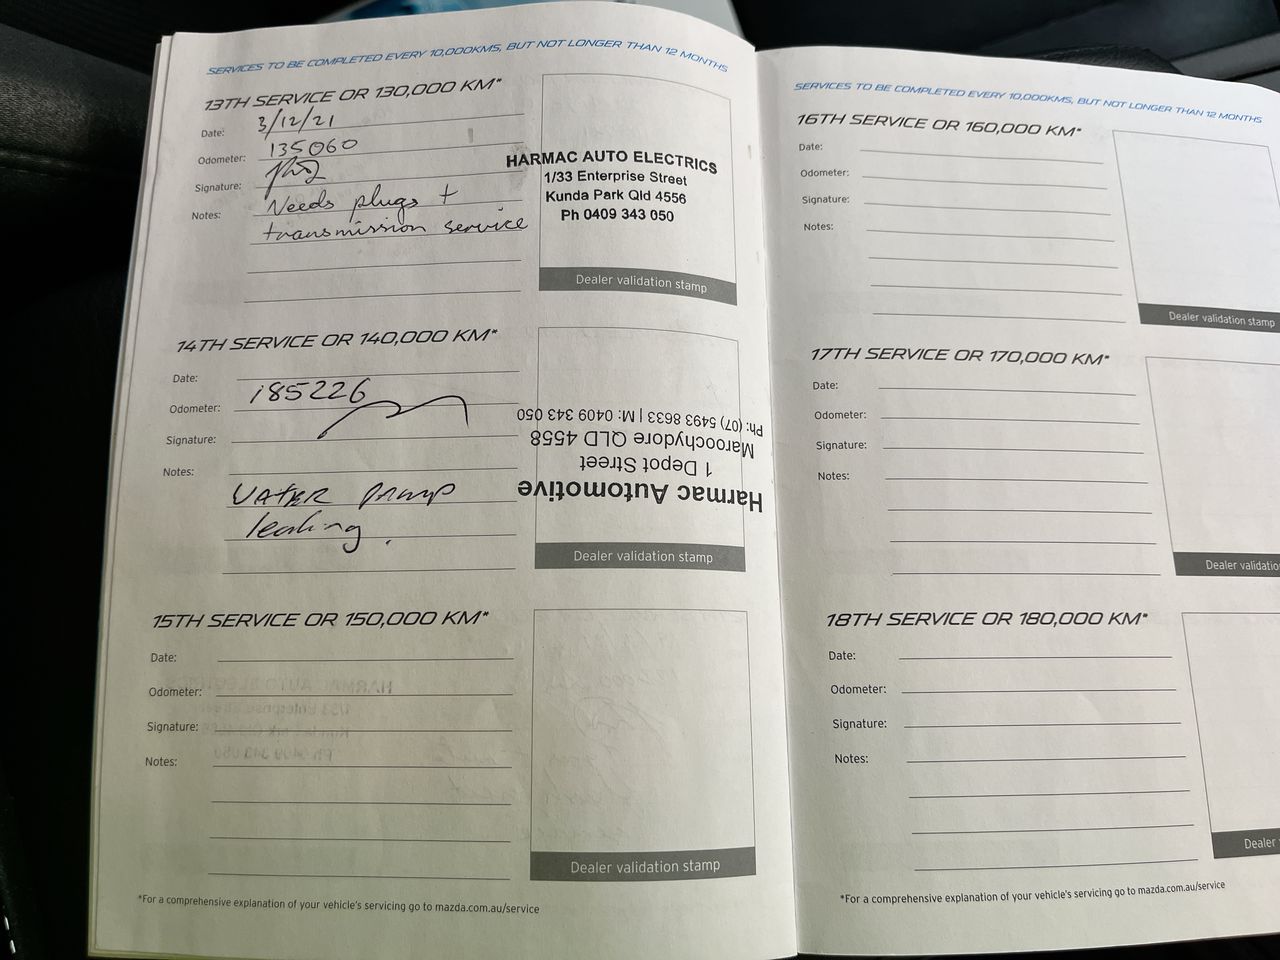 SERVICES TO BE COMPLETED EVERY 10,000KMS, BUT NOT LONGER THAN 12 MONTHS
13TH SERVICE OR 130,000 KM*
Date: 3/12/21
Odometer: 135060
Signature:
Notes: Needs plugs +
transmission service
HARMAC AUTO ELECTRICS
1/33 Enterprise Street
Kunda Park Qld 4556
Ph 0409 343 050
Dealer validation stamp
14TH SERVICE OR 140,000 KM*
Date:
Odometer: 185226
Signature:
Notes:
WATER PAMP
leaking.
Harmac Automotive
1 Depot Street
Maroochydore QLD 4558
Ph: (07) 5493 8633 | M: 0409 343 050
Dealer validation stamp
15TH SERVICE OR 150,000 KM*
Date:
Odometer:
Signature:
Notes:
Dealer validation stamp
*For a comprehensive explanation of your vehicle's servicing go to mazda.com.au/service
SERVICES TO BE COMPLETED EVERY 10,000KMS, BUT NOT LONGER THAN 12 MONTHS
16TH SERVICE OR 160,000 KM*
Date:
Odometer:
Signature:
Notes:
Dealer validation stamp
17TH SERVICE OR 170,000 KM*
Date:
Odometer:
Signature:
Notes:
Dealer validatio
18TH SERVICE OR 180,000 KM*
Date:
Odometer:
Signature:
Notes:
Dealer
*For a comprehensive explanation of your vehicle's servicing go to mazda.com.au/service